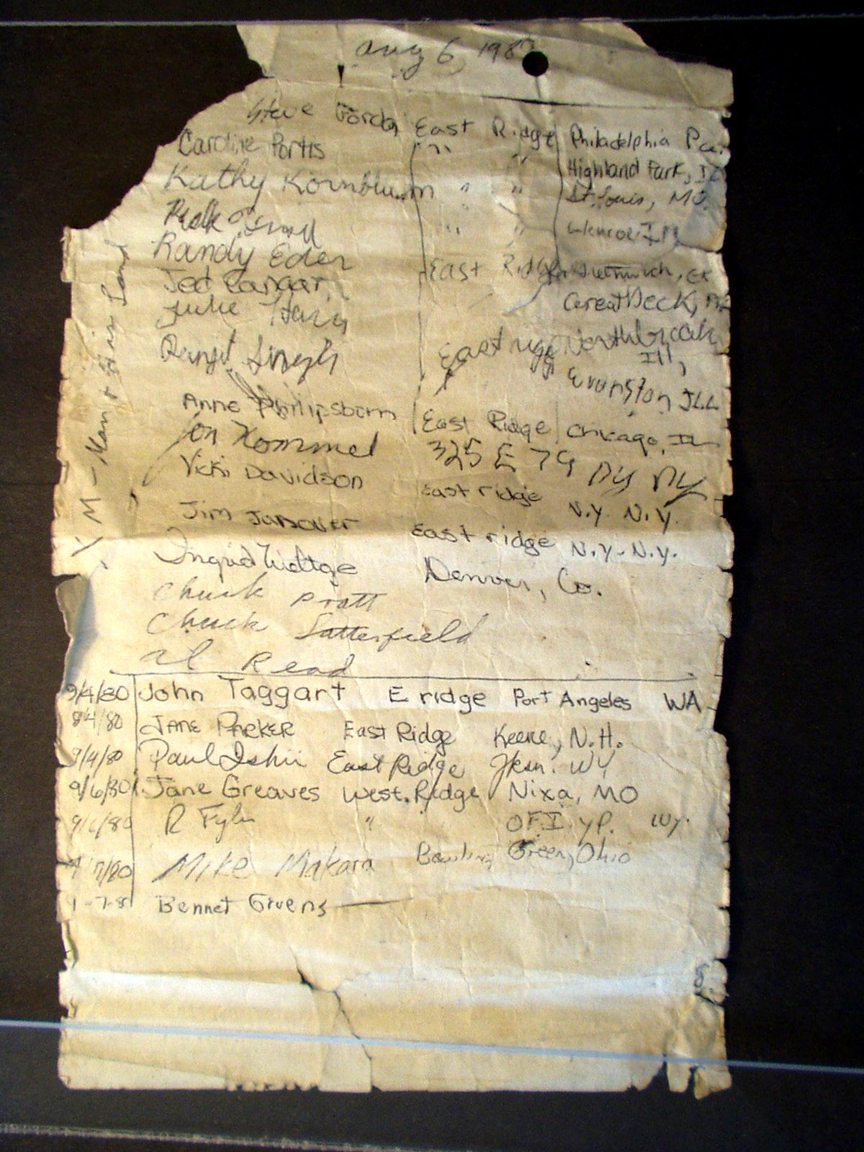 Aug 6, 198
Steve East Ridge Philadelphia Pa.
Caroline Portis " " Highland Park, IL
Kathy Kornblum " " St. Louis, MO.
" " Glencoe Ill
Randy Eder East Ridge
Jed
Great Neck, NY
Julie East ridge Northbrook Ill,
Singh Evanston ILL
Anne Philipsborn East Ridge Chicago, IL
Jon Kommel 325 E 79 NY NY
Vicki Davidson East ridge N.Y. N.Y.
Jim Janover East ridge N.Y. N.Y.
Ingrid Denver, Co.
Chuck Pratt
Chuck Satterfield
Al Read
YM - Man & His Land
9/4/80 John Taggart E ridge Port Angeles WA
9/4/80 JANE PARKER East Ridge Keene, N.H.
9/4/80 Paul Ishii East Ridge Jksn. WY
9/6/80 Jane Greaves West Ridge Nixa, MO
9/6/80 R " O.F.I. YP. Wy.
9/17/80 Mike Makara Bowling Green, Ohio
Bennet Gruens